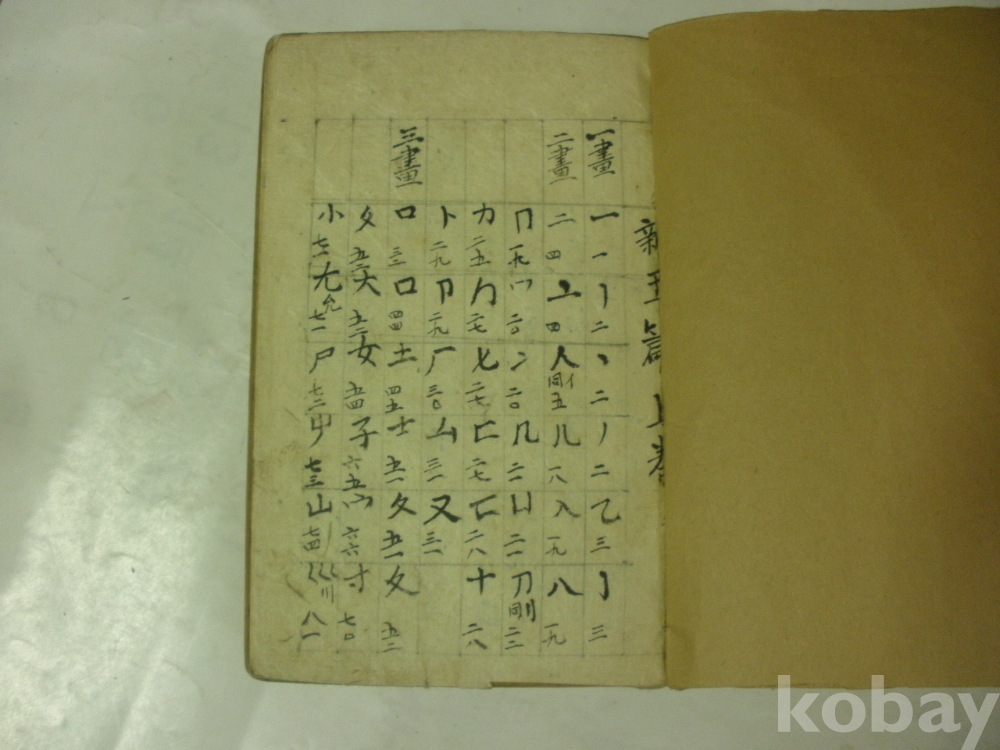 新玉篇 上卷
一畫 一 一 丨 二 丶 二 丿 二 乙 三 亅 三
二畫 二 四 亠 四 人 同亻 五 儿 一八 入 一九 八 一九
冂 一九 冖 二〇 冫 二〇 几 二一 凵 二一 刀 同刂 二二
力 二五 勹 二七 匕 二七 匚 二七 匸 二八 十 二八
卜 二九 卩 二九 厂 三〇 厶 三一 又 三一
三畫 口 三二 囗 四四 土 四五 士 五一 夂 五一 夊 五二
夕 五二 大 五二 女 五四 子 六五 宀 六六 寸 七〇
小 尢 允 七一 尸 七二 屮 七三 山 七四 巛 川 八一
kobay